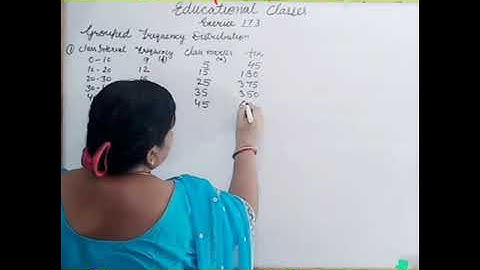 Educational Classes
Exercise 17.3
Grouped Frequency Distribution
① Class Interval Frequency (f) Class marks (x) fxx
0-10 9 5 45
10-20 12 15 180
20-30 25 375
35 350
45